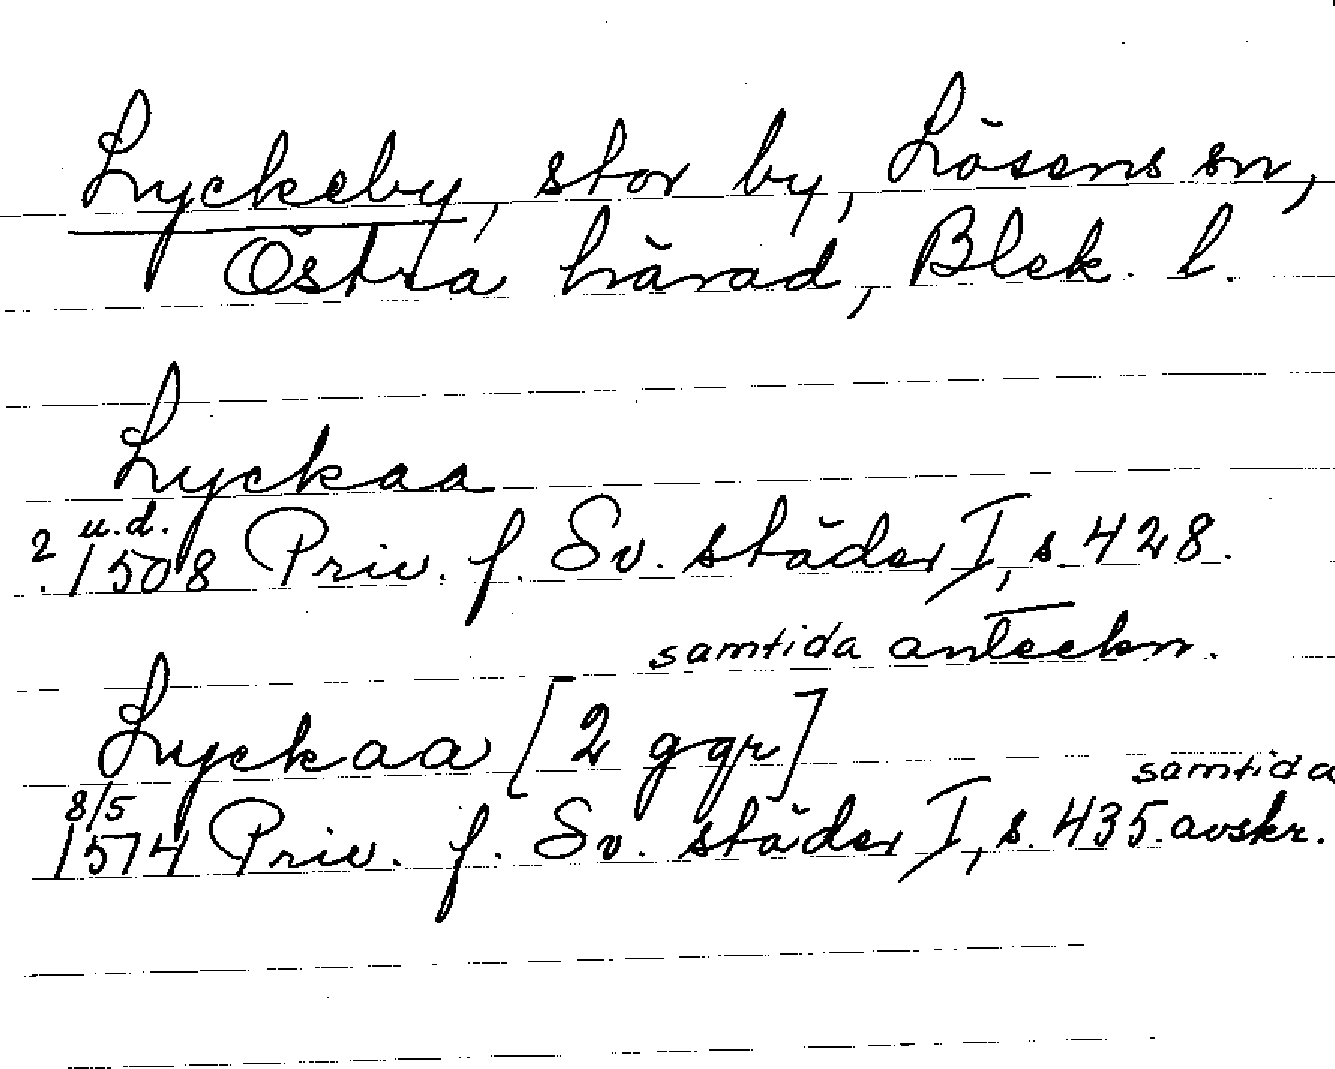 Lyckeby, stor by, Lösens sn,
Östra härad, Blek. l.
Lyckaa
u.d.
? 1508 Priv. f. Sv. städer I, s. 428.
samtida anteckn.
Lyckaa [2 ggr]
8/5 samtida
1574 Priv. f. Sv. städer I, s. 435. avskr.